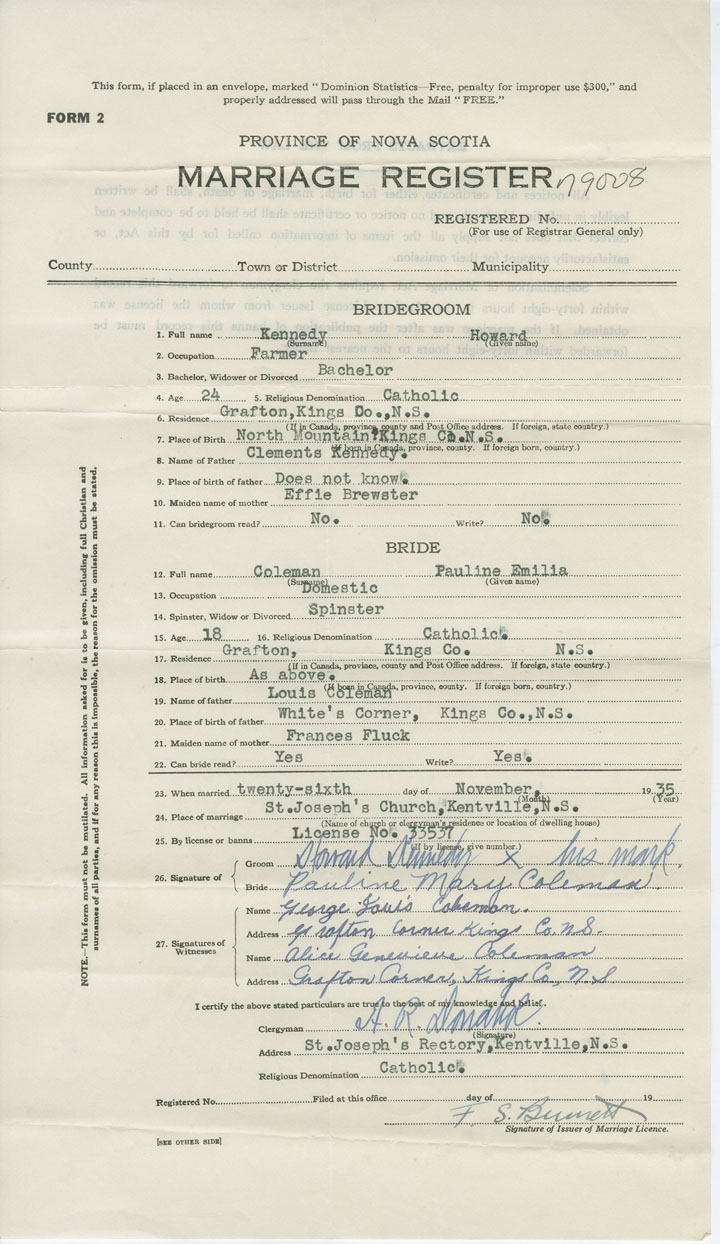 This form, if placed in an envelope, marked "Dominion Statistics—Free, penalty for improper use $300," and
properly addressed will pass through the Mail "FREE."
FORM 2
PROVINCE OF NOVA SCOTIA
MARRIAGE REGISTER n9008
REGISTERED No.
(For use of Registrar General only)
County Town or District Municipality
BRIDEGROOM
1. Full name Kennedy Howard
(Surname) (Given name)
2. Occupation Farmer
3. Bachelor, Widower or Divorced Bachelor
4. Age 24 5. Religious Denomination Catholic
6. Residence Grafton,Kings Do.,N.S.
(If in Canada, province, county and Post Office address. If foreign, state country.)
7. Place of Birth North Mountain,Kings Co.N.S.
(If born in Canada, province, county. If foreign born, country.)
8. Name of Father Clements Kennedy.
9. Place of birth of father Does not know.
10. Maiden name of mother Effie Brewster
11. Can bridegroom read? No. Write? No.
BRIDE
12. Full name Coleman Pauline Emilia
(Surname) (Given name)
13. Occupation Domestic
14. Spinster, Widow or Divorced Spinster
15. Age 18 16. Religious Denomination Catholic.
17. Residence Grafton, Kings Co. N.S.
(If in Canada, province, county and Post Office address. If foreign, state country.)
18. Place of birth As above.
(If born in Canada, province, county. If foreign born, country.)
19. Name of father Louis Coleman
20. Place of birth of father White's Corner, Kings Co.,N.S.
21. Maiden name of mother Frances Fluck
22. Can bride read? Yes Write? Yes.
23. When married twenty-sixth day of November, 1935
(Month) (Year)
24. Place of marriage St.Joseph's Church,Kentville,N.S.
(Name of church or clergyman's residence or location of dwelling house)
25. By license or banns License No. 33537
(If by license, give number.)
26. Signature of Groom Howard Kennedy x his mark.
Bride Pauline Mary Coleman.
27. Signatures of Witnesses Name George Louis Coleman.
Address Grafton Corner Kings Co. N.S.
Name Alice Genevieve Coleman
Address Grafton Corner, Kings Co., N.S
I certify the above stated particulars are true to the best of my knowledge and belief.
Clergyman A. R. Donahoe.
(Signature)
Address St.Joseph's Rectory,Kentville,N.S.
Religious Denomination Catholic.
Registered No. Filed at this office day of 19
F. S. Burnett
Signature of Issuer of Marriage Licence.
[SEE OTHER SIDE]
NOTE.—This form must not be mutilated. All information asked for is to be given, including full Christian and
surnames of all parties, and if for any reason this is impossible, the reason for the omission must be stated.